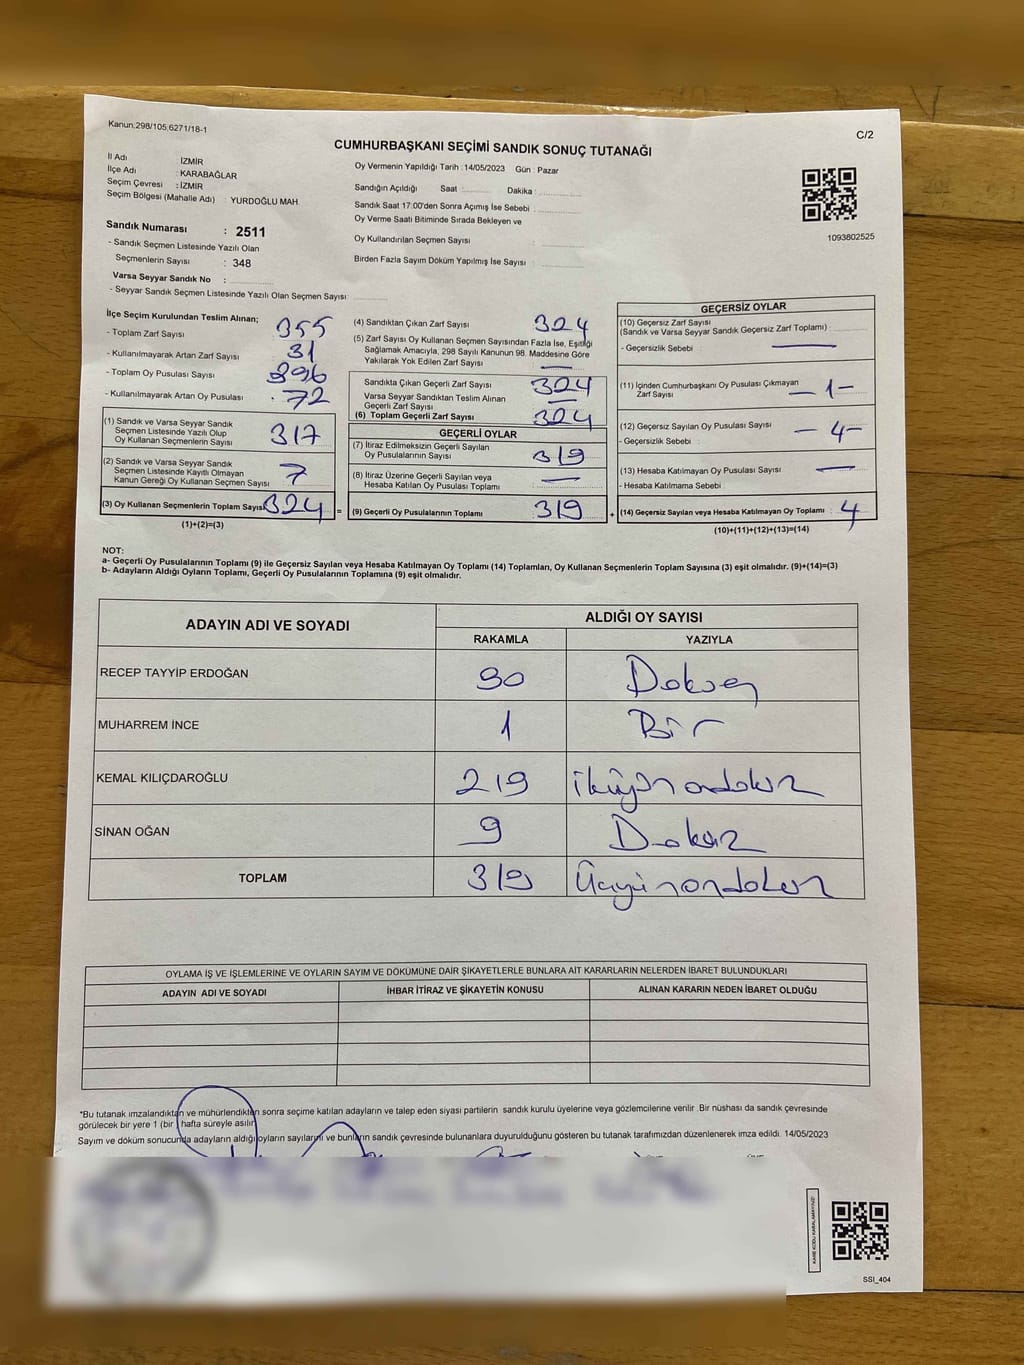 Kanun:298/105,6271/18-1
C/2
CUMHURBAŞKANI SEÇİMİ SANDIK SONUÇ TUTANAĞI
İl Adı : İZMİR
İlçe Adı : KARABAĞLAR
Seçim Çevresi : İZMİR
Seçim Bölgesi (Mahalle Adı) : YURDOĞLU MAH.
Oy Vermenin Yapıldığı Tarih :14/05/2023 Gün : Pazar
Sandığın Açıldığı Saat : Dakika :
Sandık Saat 17:00'den Sonra Açımış İse Sebebi :
Oy Verme Saati Bitiminde Sırada Bekleyen ve
Oy Kullandırılan Seçmen Sayısı :
Birden Fazla Sayım Döküm Yapılmış İse Sayısı :
1093802525
Sandık Numarası : 2511
- Sandık Seçmen Listesinde Yazılı Olan
Seçmenlerin Sayısı : 348
Varsa Seyyar Sandık No :
- Seyyar Sandık Seçmen Listesinde Yazılı Olan Seçmen Sayısı:
İlçe Seçim Kurulundan Teslim Alınan;
- Toplam Zarf Sayısı 355
- Kullanılmayarak Artan Zarf Sayısı 31
- Toplam Oy Pusulası Sayısı 396
- Kullanılmayarak Artan Oy Pusulası 72
(1) Sandık ve Varsa Seyyar Sandık
Seçmen Listesinde Yazılı Olup
Oy Kullanan Seçmenlerin Sayısı 317
(2) Sandık ve Varsa Seyyar Sandık
Seçmen Listesinde Kayıtlı Olmayan
Kanun Gereği Oy Kullanan Seçmen Sayısı 7
(3) Oy Kullanan Seçmenlerin Toplam Sayısı 324
(1)+(2)=(3)
(4) Sandıktan Çıkan Zarf Sayısı 324
(5) Zarf Sayısı Oy Kullanan Seçmen Sayısından Fazla İse, Eşitliği
Sağlamak Amacıyla, 298 Sayılı Kanunun 98. Maddesine Göre
Yakılarak Yok Edilen Zarf Sayısı —
Sandıkta Çıkan Geçerli Zarf Sayısı 324
Varsa Seyyar Sandıktan Teslim Alınan
Geçerli Zarf Sayısı —
(6) Toplam Geçerli Zarf Sayısı 324
GEÇERLİ OYLAR
(7) İtiraz Edilmeksizin Geçerli Sayılan
Oy Pusulalarının Sayısı 319
(8) İtiraz Üzerine Geçerli Sayılan veya
Hesaba Katılan Oy Pusulası Toplamı —
=
(9) Geçerli Oy Pusulalarının Toplamı 319
+
GEÇERSİZ OYLAR
(10) Geçersiz Zarf Sayısı
(Sandık ve Varsa Seyyar Sandık Geçersiz Zarf Toplamı)
- Geçersizlik Sebebi : —
(11) İçinden Cumhurbaşkanı Oy Pusulası Çıkmayan
Zarf Sayısı — 1 —
(12) Geçersiz Sayılan Oy Pusulası Sayısı — 4 —
- Geçersizlik Sebebi :
(13) Hesaba Katılmayan Oy Pusulası Sayısı —
- Hesaba Katılmama Sebebi :
(14) Geçersiz Sayılan veya Hesaba Katılmayan Oy Toplamı : 4
(10)+(11)+(12)+(13)=(14)
NOT:
a- Geçerli Oy Pusulalarının Toplamı (9) ile Geçersiz Sayılan veya Hesaba Katılmayan Oy Toplamı (14) Toplamları, Oy Kullanan Seçmenlerin Toplam Sayısına (3) eşit olmalıdır. (9)+(14)=(3)
b- Adayların Aldığı Oyların Toplamı, Geçerli Oy Pusulalarının Toplamına (9) eşit olmalıdır.
ADAYIN ADI VE SOYADI
ALDIĞI OY SAYISI
RAKAMLA YAZIYLA
RECEP TAYYİP ERDOĞAN 90 Doksan
MUHARREM İNCE 1 Bir
KEMAL KILIÇDAROĞLU 219 ikiyüzondokuz
SİNAN OĞAN 9 Dokuz
TOPLAM 319 Üçyüzondokuz
OYLAMA İŞ VE İŞLEMLERİNE VE OYLARIN SAYIM VE DÖKÜMÜNE DAİR ŞİKAYETLERLE BUNLARA AİT KARARLARIN NELERDEN İBARET BULUNDUKLARI
ADAYIN ADI VE SOYADI İHBAR İTİRAZ VE ŞİKAYETİN KONUSU ALINAN KARARIN NEDEN İBARET OLDUĞU
*Bu tutanak imzalandıktan ve mühürlendikten sonra seçime katılan adayların ve talep eden siyasi partilerin sandık kurulu üyelerine veya gözlemcilerine verilir .Bir nüshası da sandık çevresinde
görülecek bir yere 1 (bir) hafta süreyle asılır
Sayım ve döküm sonucunda adayların aldığı oyların sayılarını ve bunların sandık çevresinde bulunanlara duyurulduğunu gösteren bu tutanak tarafımızdan düzenlenerek imza edildi. 14/05/2023
KARE KODU KARALAMAYINIZ!
SSI_404